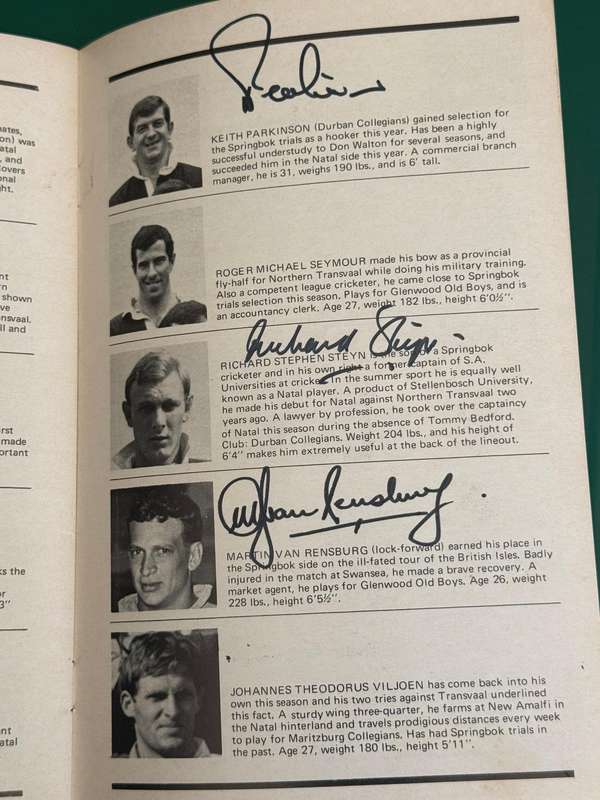 ates,
on) was
atal
, and
lovers
onal
ht.
nt
rn
shown
ve
ansvaal.
ll and
rst
made
ortant
ks the
or
3"
nt
atal
KEITH PARKINSON (Durban Collegians) gained selection for
the Springbok trials as a hooker this year. Has been a highly
successful understudy to Don Walton for several seasons, and
succeeded him in the Natal side this year. A commercial branch
manager, he is 31, weighs 190 lbs., and is 6' tall.
ROGER MICHAEL SEYMOUR made his bow as a provincial
fly-half for Northern Transvaal while doing his military training.
Also a competent league cricketer, he came close to Springbok
trials selection this season. Plays for Glenwood Old Boys, and is
an accountancy clerk. Age 27, weight 182 lbs., height 6'0½".
Richard Steyn.
RICHARD STEPHEN STEYN is the son of a Springbok
cricketer and in his own right a former captain of S.A.
Universities at cricket. In the summer sport he is equally well
known as a Natal player. A product of Stellenbosch University,
he made his debut for Natal against Northern Transvaal two
years ago. A lawyer by profession, he took over the captaincy
of Natal this season during the absence of Tommy Bedford.
Club: Durban Collegians. Weight 204 lbs., and his height of
6'4" makes him extremely useful at the back of the lineout.
van Rensburg.
MARTIN VAN RENSBURG (lock-forward) earned his place in
the Springbok side on the ill-fated tour of the British Isles. Badly
injured in the match at Swansea, he made a brave recovery. A
market agent, he plays for Glenwood Old Boys. Age 26, weight
228 lbs., height 6'5½".
JOHANNES THEODORUS VILJOEN has come back into his
own this season and his two tries against Transvaal underlined
this fact. A sturdy wing three-quarter, he farms at New Amalfi in
the Natal hinterland and travels prodigious distances every week
to play for Maritzburg Collegians. Has had Springbok trials in
the past. Age 27, weight 180 lbs., height 5'11".